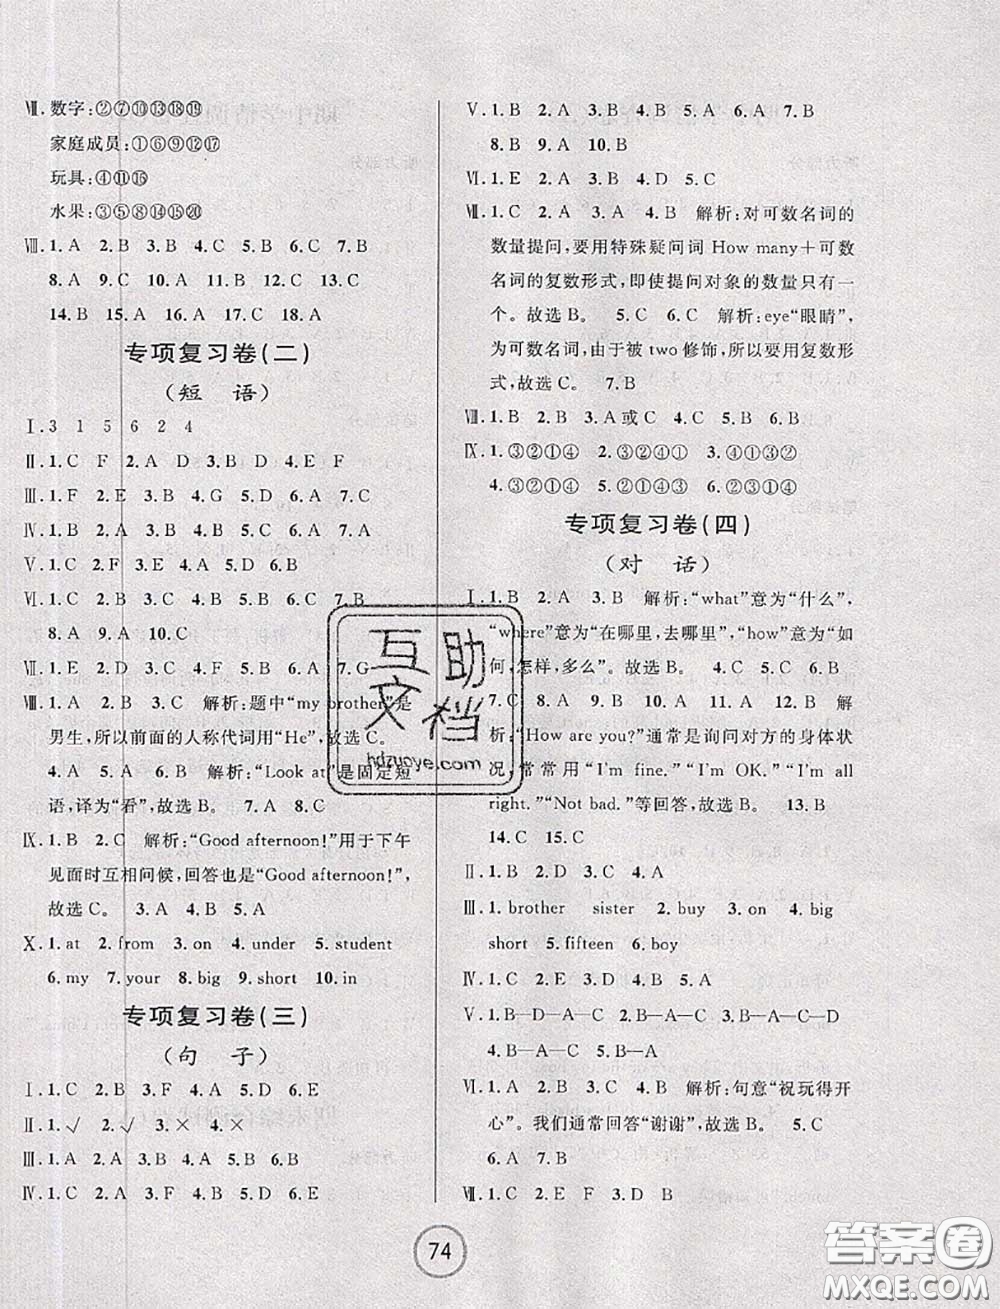 Ⅶ. 数字:②⑦⑩⑬⑱⑲
家庭成员:①⑥⑨⑫⑰
玩具:④⑪⑯
水果:③⑤⑧⑭⑮⑳
Ⅷ. 1. A 2. B 3. B 4. C 5. B 6. C 7. B
8. A 9. C 10. A 11. B 12. C 13. C
14. B 15. A 16. A 17. C 18. A
专项复习卷(二)
(短 语)
Ⅰ. 3 1 5 6 2 4
Ⅱ. 1. C F 2. A D 3. B D 4. E F
Ⅲ. 1. F 2. E 3. B 4. G 5. D 6. C 7. A
Ⅳ. 1. B 2. A 3. B 4. A 5. B 6. A 7. B
Ⅴ. 1. C 2. F 3. E 4. A 5. D 6. B
Ⅵ. 1. C 2. B 3. C 4. B 5. A 6. B
8. A 9. A 10. A
Ⅶ. 1. B 2. D 3. C 4. F 5. A 7. G
Ⅷ. 1. A 2. B 3. C 解析:题中“my brother”是
男生,所以前面的人称代词用“He”,故选C。
4. A 5. A 6. B 解析:“Look at”是固定短
语,译为“看”,故选B。 7. A 8. C
Ⅸ. 1. B 2. C 解析:“Good afternoon!”用于下午
见面时互相问候,回答也是“Good afternoon!”,
故选C。 3. A 4. B 5. A
Ⅹ. 1. at 2. from 3. on 4. under 5. student
6. my 7. your 8. big 9. short 10. in
专项复习卷(三)
(句 子)
Ⅰ. 1. C 2. B 3. F 4. A 5. D 6. E
Ⅱ. 1. √ 2. √ 3. × 4. ×
Ⅲ. 1. A 2. B 3. A 4. B 5. A 6. B
Ⅳ. 1. C 2. A 3. B 4. D 5. F 6. E
Ⅴ. 1. B 2. A 3. B 4. C 5. A 6. A 7. B
8. B 9. A 10. B
Ⅵ. 1. E 2. A 3. B 4. D 5. C
Ⅶ. 1. C 2. A 3. A 4. B 解析:对可数名词的
数量提问,要用特殊疑问词 How many+可数
名词的复数形式,即使提问对象的数量只有一
个。故选B。 5. C 6. C 解析:eye“眼睛”,
为可数名词,由于被two修饰,所以要用复数形
式,故选C。 7. B
Ⅷ. 1. B 2. B 3. A或C 4. A 5. B 6. B
Ⅸ. 1. ③②①④ 2. ③②④① 3. ④①③②
4. ③②①④ 5. ②③④① 6. ②③①④
专项复习卷(四)
(对 话)
Ⅰ. 1. B 2. A 3. B 解析:“what”意为“什么”,
“where”意为“在哪里,去哪里”,“how”意为“如
何,怎样,多么”。故选B。 4. C 5. C 6. B
7. C 8. A 9. B 10. A 11. A 12. B 解
析:“How are you?”通常是询问对方的身体状
况,常常用“I'm fine.”“I'm OK.”“I'm all
right.”“Not bad.”等回答,故选B。 13. B
14. C 15. C
Ⅱ. 1. B 2. D 3. A 4. C
Ⅲ. 1. brother sister 2. buy 3. on 4. big
short 5. fifteen 6. boy
Ⅳ. 1. C 2. D 3. E 4. B 5. A
Ⅴ. 1. B—D—A—C 2. B—D—A—C 3. B—A—C
4. B—A 5. B—A—C
Ⅵ. 1. C 2. A 3. B 4. B 解析:句意“祝玩得开
心”。我们通常回答“谢谢”,故选B。 5. C
6. A 7. B
Ⅶ. 1. C 2. E 3. F 4. A 5. B 6. D
74
互助
文档
hdzuoye.com
答案圈
MXQE.COM